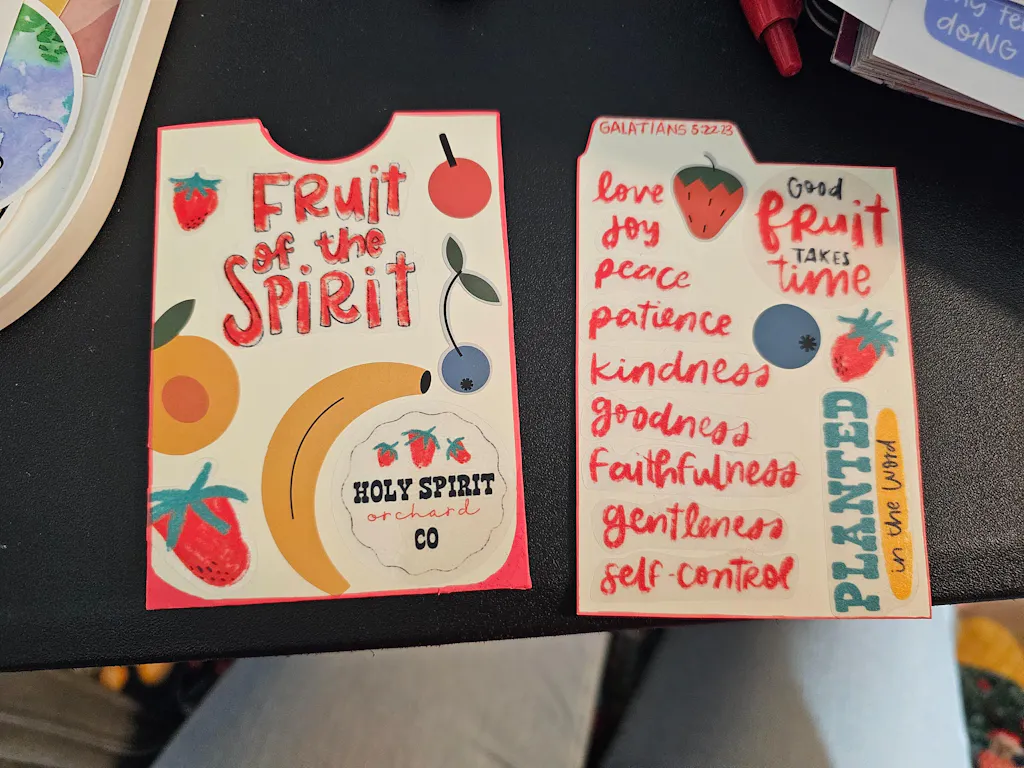 FRuit
of the
SPiRit
HOLY SPIRIT
orchard
CO
GALATIANS 5:22-23
love
joy
peace
patience
kindness
goodness
faithfulness
gentleness
self-control
Good
fRuiT
TAKES
time
PLANTED
in the Word
doiNG